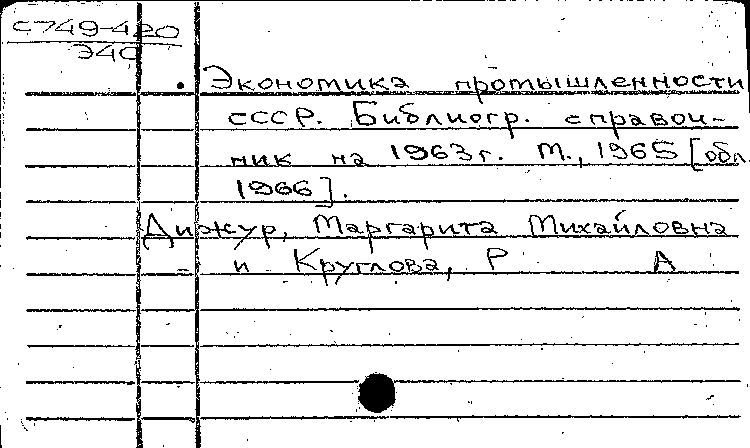 С749-420
Э40
. Экономика промышленности
СССР. Библиогр. справоч-
ник на 1963г. М., 1965 [обл.
1966].
Дижур, Маргарита Михайловна
= и Круглова, Р А